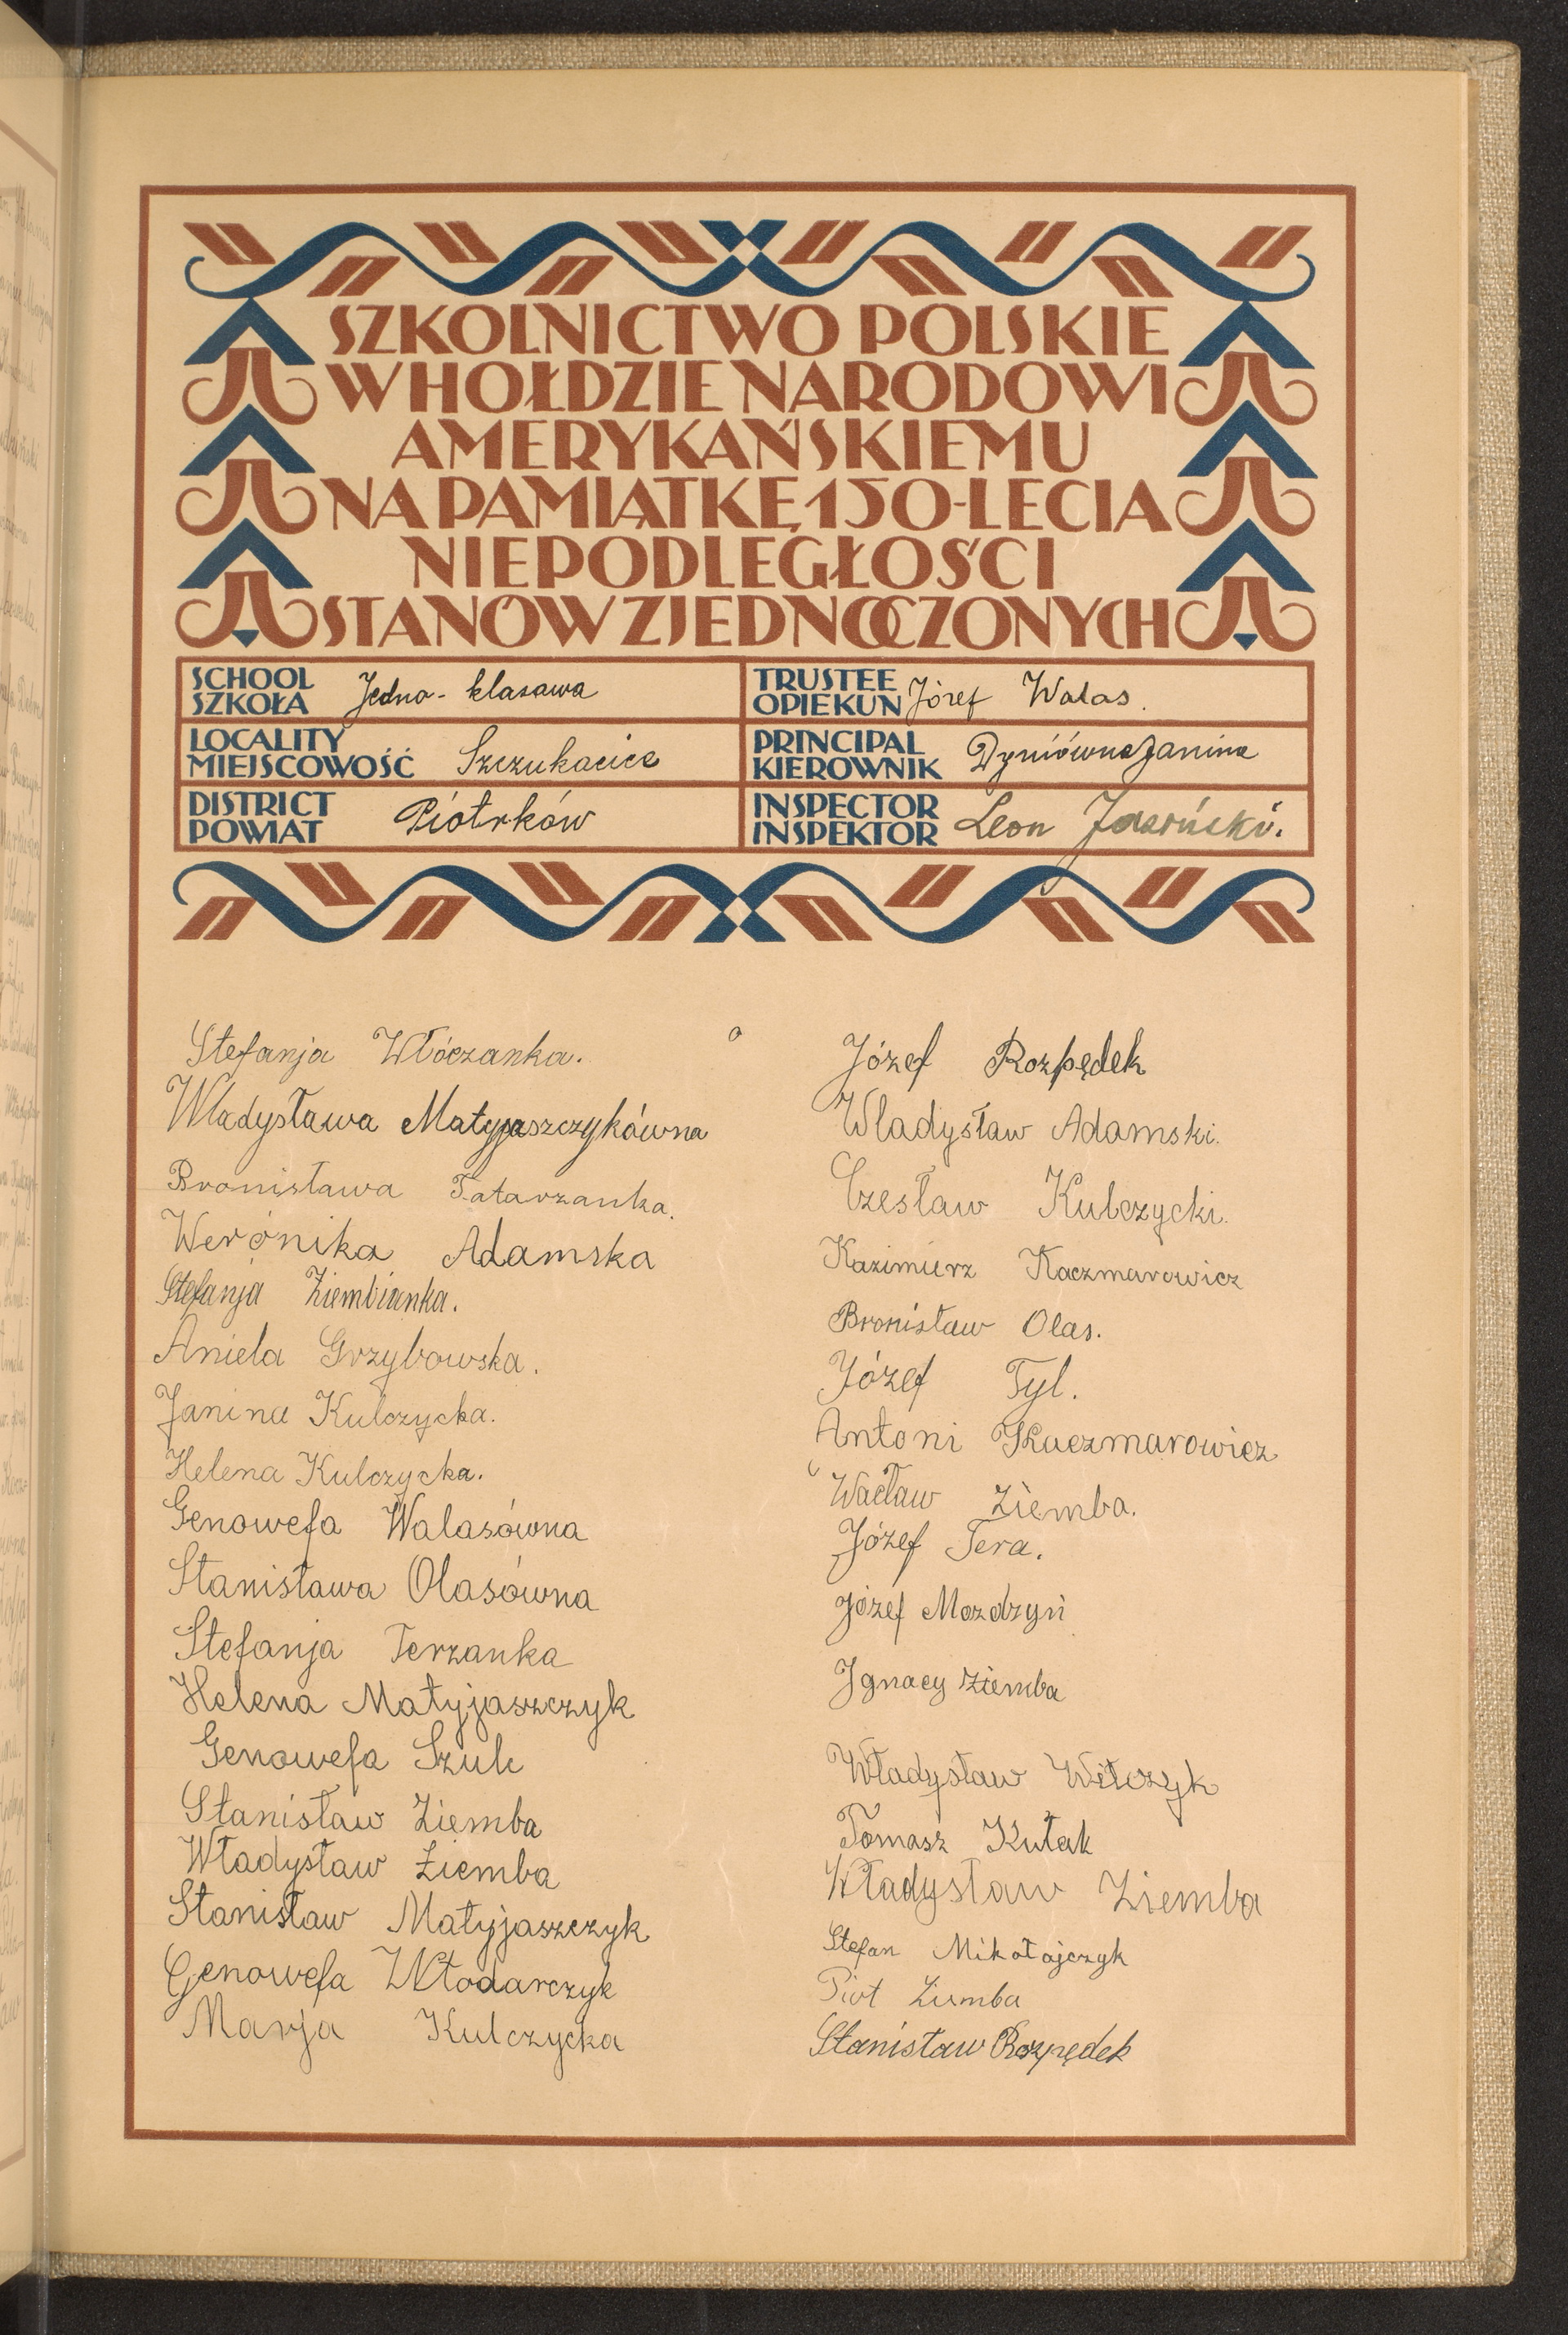 SZKOLNICTWO POLSKIE
W HOŁDZIE NARODOWI
AMERYKAŃSKIEMU
NA PAMIĄTKĘ 150-LECIA
NIEPODLEGŁOŚCI
STANÓW ZJEDNOCZONYCH
SCHOOL
SZKOŁA Jedno-klasowa
TRUSTEE
OPIEKUN Józef Walas.
LOCALITY
MIEJSCOWOŚĆ Szczukocice
PRINCIPAL
KIEROWNIK Dyniówna Janina
DISTRICT
POWIAT Piotrków
INSPECTOR
INSPEKTOR Leon Jasiński.
Stefanja Włóczanka.
Wladysława Matyjaszczykówna
Bronisława Tatarzanka.
Werónika Adamska
Stefanja Ziembianka.
Aniela Grzybowska.
Janina Kulczycka.
Helena Kulczycka.
Genowefa Walasówna
Stanisława Olasówna
Stefanja Terzanka
Helena Matyjaszczyk
Genowefa Szulc
Stanisław Ziemba
Władysław Ziemba
Stanisław Matyjaszczyk
Genowefa Włodarczyk
Marja Kulczycka
Józef Rozpędek
Wladysław Adamski.
Czesław Kulczycki.
Kazimierz Kaczmarowicz
Bronisław Olas.
Józef Tyl.
Antoni Kaczmarowicz
Wacław Ziemba.
Józef Tera.
Józef Mozdzyń
Ignacy Ziemba
Władysław Witczyk
Tomasz Kułak
Władysław Ziemba
Stefan Mikołajczyk
Piot Ziemba
Stanisław Rozpędek